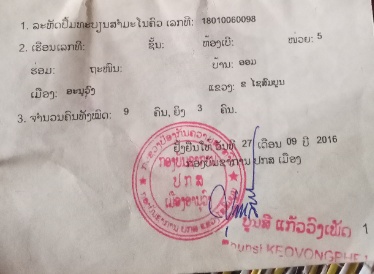 1. ລະຫັດປຶ້ມທະບຽນສຳມະໂນຄົວ ເລກທີ: 18010060098
2. ເຮືອນເລກທີ: ຊັ້ນ: ຫ້ອງເບີ: ໜ່ວຍ: 5
ຮ່ອມ: ຖະໜົນ: ບ້ານ: ອອມ
ເມືອງ: ອະນຸວົງ ແຂວງ: ຂ ໄຊສົມບູນ
3. ຈຳນວນຄົນທັງໝົດ: 9 ຄົນ, ຍິງ 3 ຄົນ.
ຢັ້ງຢືນໃຫ້ ວັນທີ 27 ເດືອນ 09 ປີ 2016
ກອງບັນຊາການ ປກສ ເມືອງ
ປກສ
ບຸນສີ ແກ້ວວົງເພັດ
Bounsi KEOVONGPHET
1